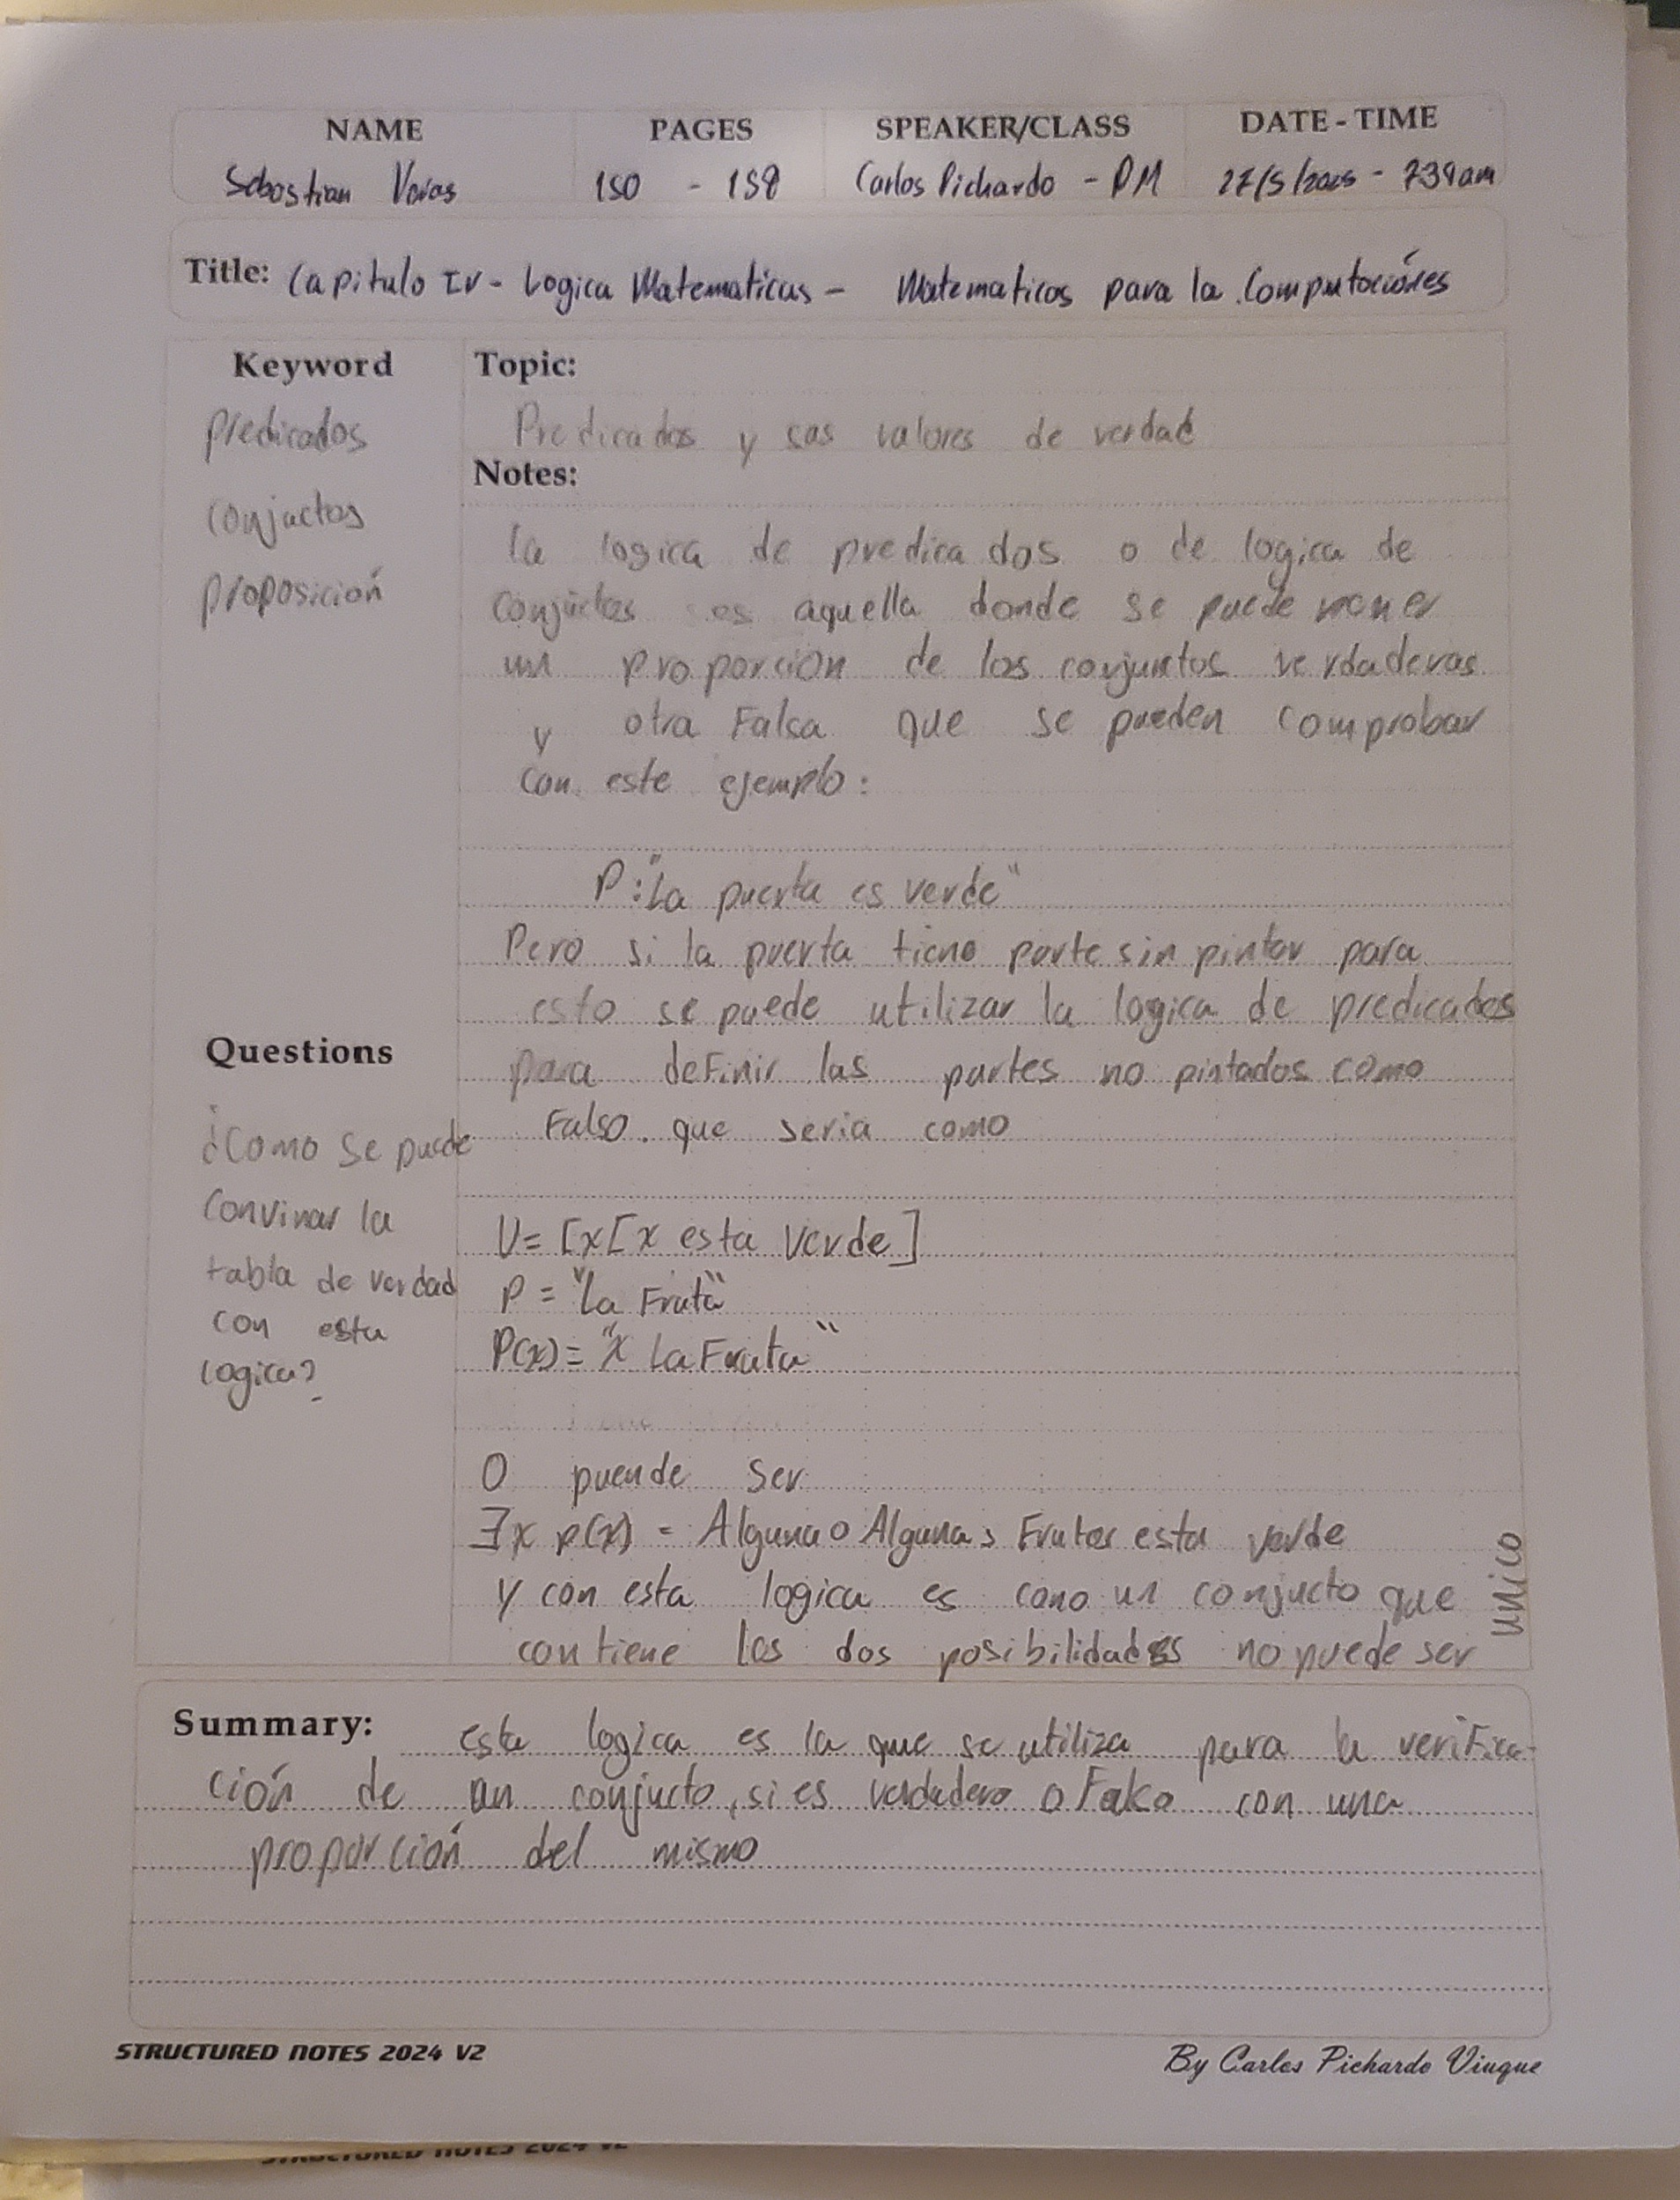 NAME PAGES SPEAKER/CLASS DATE - TIME
Sebastian Varas 150 - 158 Carlos Pichardo - DM 27/5/2025 - 739am
Title: Capitulo IV - Logica Matematicas - Matematicas para la Computaciónes
Keyword
predicados
conjuctos
proposición
Topic:
Predicados y sus valores de verdad
Notes:
la logica de predicados o de logica de
conjuctos es aquella donde se puede
un proporcion de los conjuntos verdaderas
y otra Falsa que se pueden comprobar
con este ejemplo:
P: "La puerta es verde"
Pero si la puerta tiene parte sin pintar para
esto se puede utilizar la logica de predicados
para deFinir las partes no pintados como
Falso. que seria como
U= [x[x esta Verde]
P = "La Fruta"
P(x) = "x La Fruta"
O puende ser
∃x p(x) = Alguna o Algunas Frutas esta verde
y con esta logica es como un conjucto que
contiene los dos posibilidades no puede ser
unico
Questions
¿Como se puede
convinar la
tabla de verdad
con esta
logica?
Summary: esta logica es la que se utiliza para la veriFica-
ción de un conjucto, si es verdadero o Falso con una
proporción del mismo
STRUCTURED NOTES 2024 V2
By Carlos Pichardo Viuque
STRUCTURED NOTES 2024 V2